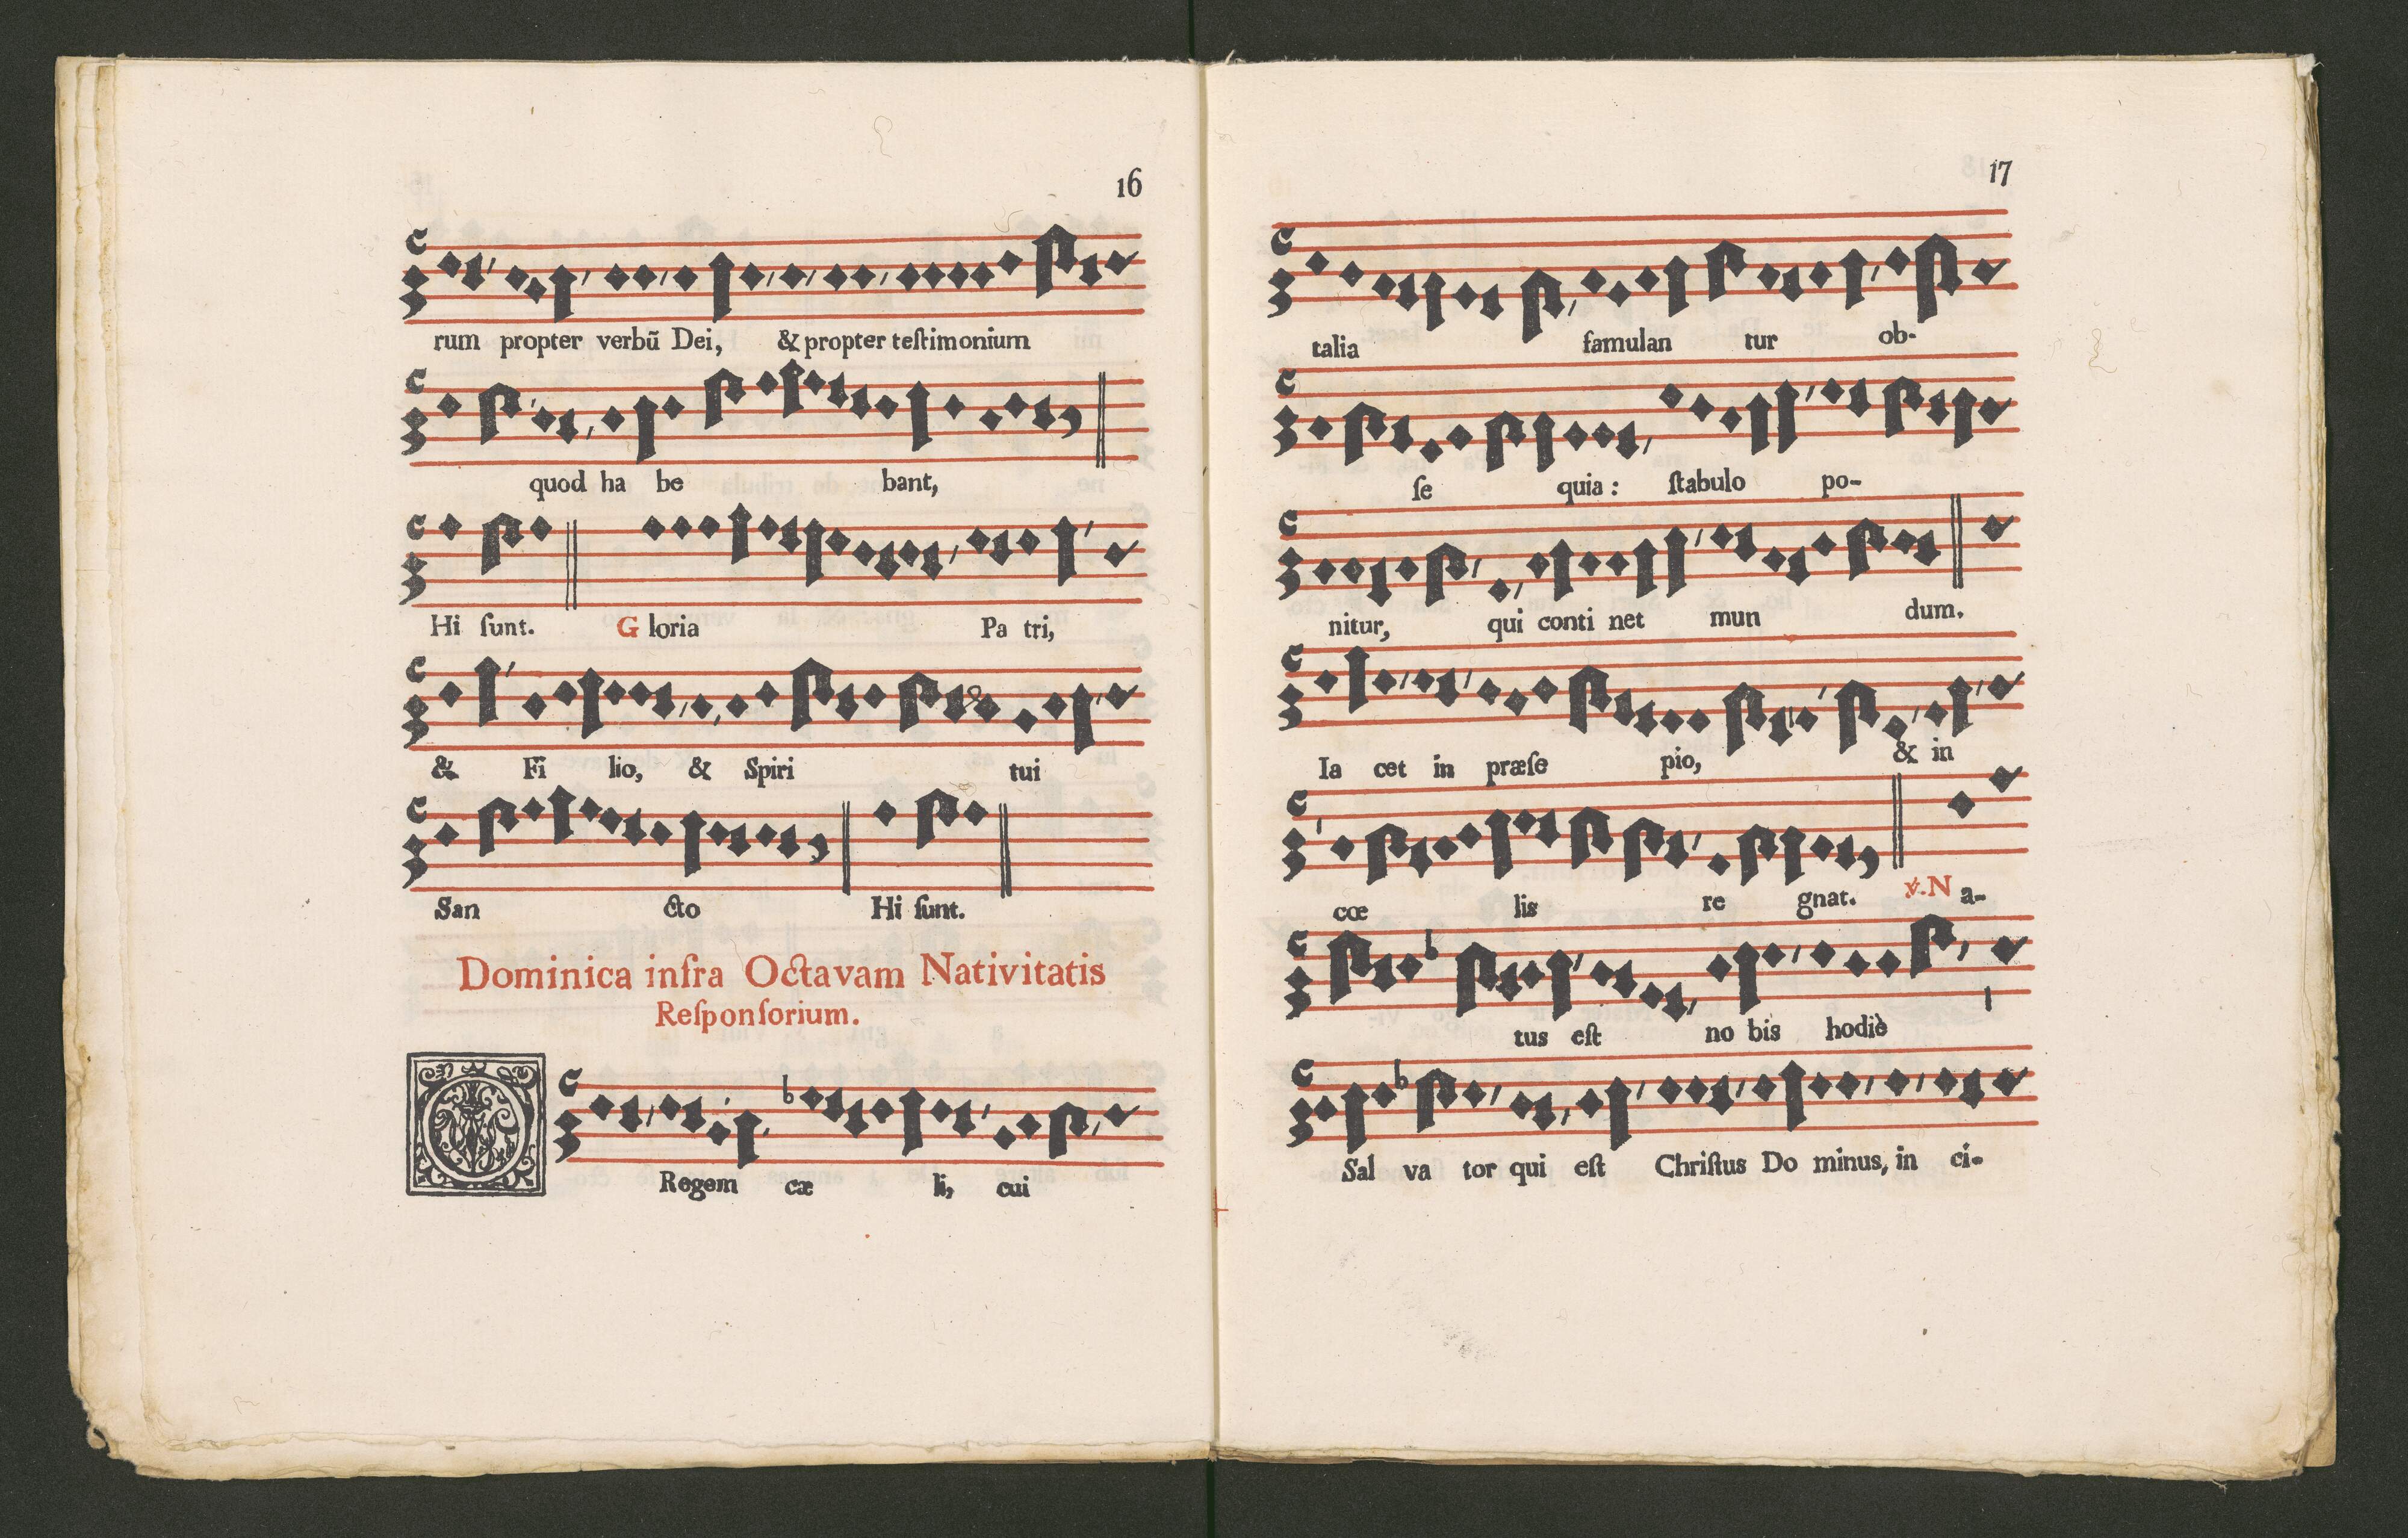 16
rum propter verbũ Dei, & propter teſtimonium
quod ha be bant,
Hi ſunt. G loria Pa tri,
& Fi lio, & Spiri tui
San cto Hi ſunt.
Dominica infra Octavam Nativitatis
Reſponſorium.
O Regem cæ li, cui
17
talia famulan tur ob-
ſe quia : ſtabulo po-
nitur, qui conti net mun dum.
Ia cet in præſe pio, & in
cœ lis re gnat. ℣. N a-
tus eſt no bis hodiè
Sal va tor qui eſt Chriſtus Do minus, in ci-